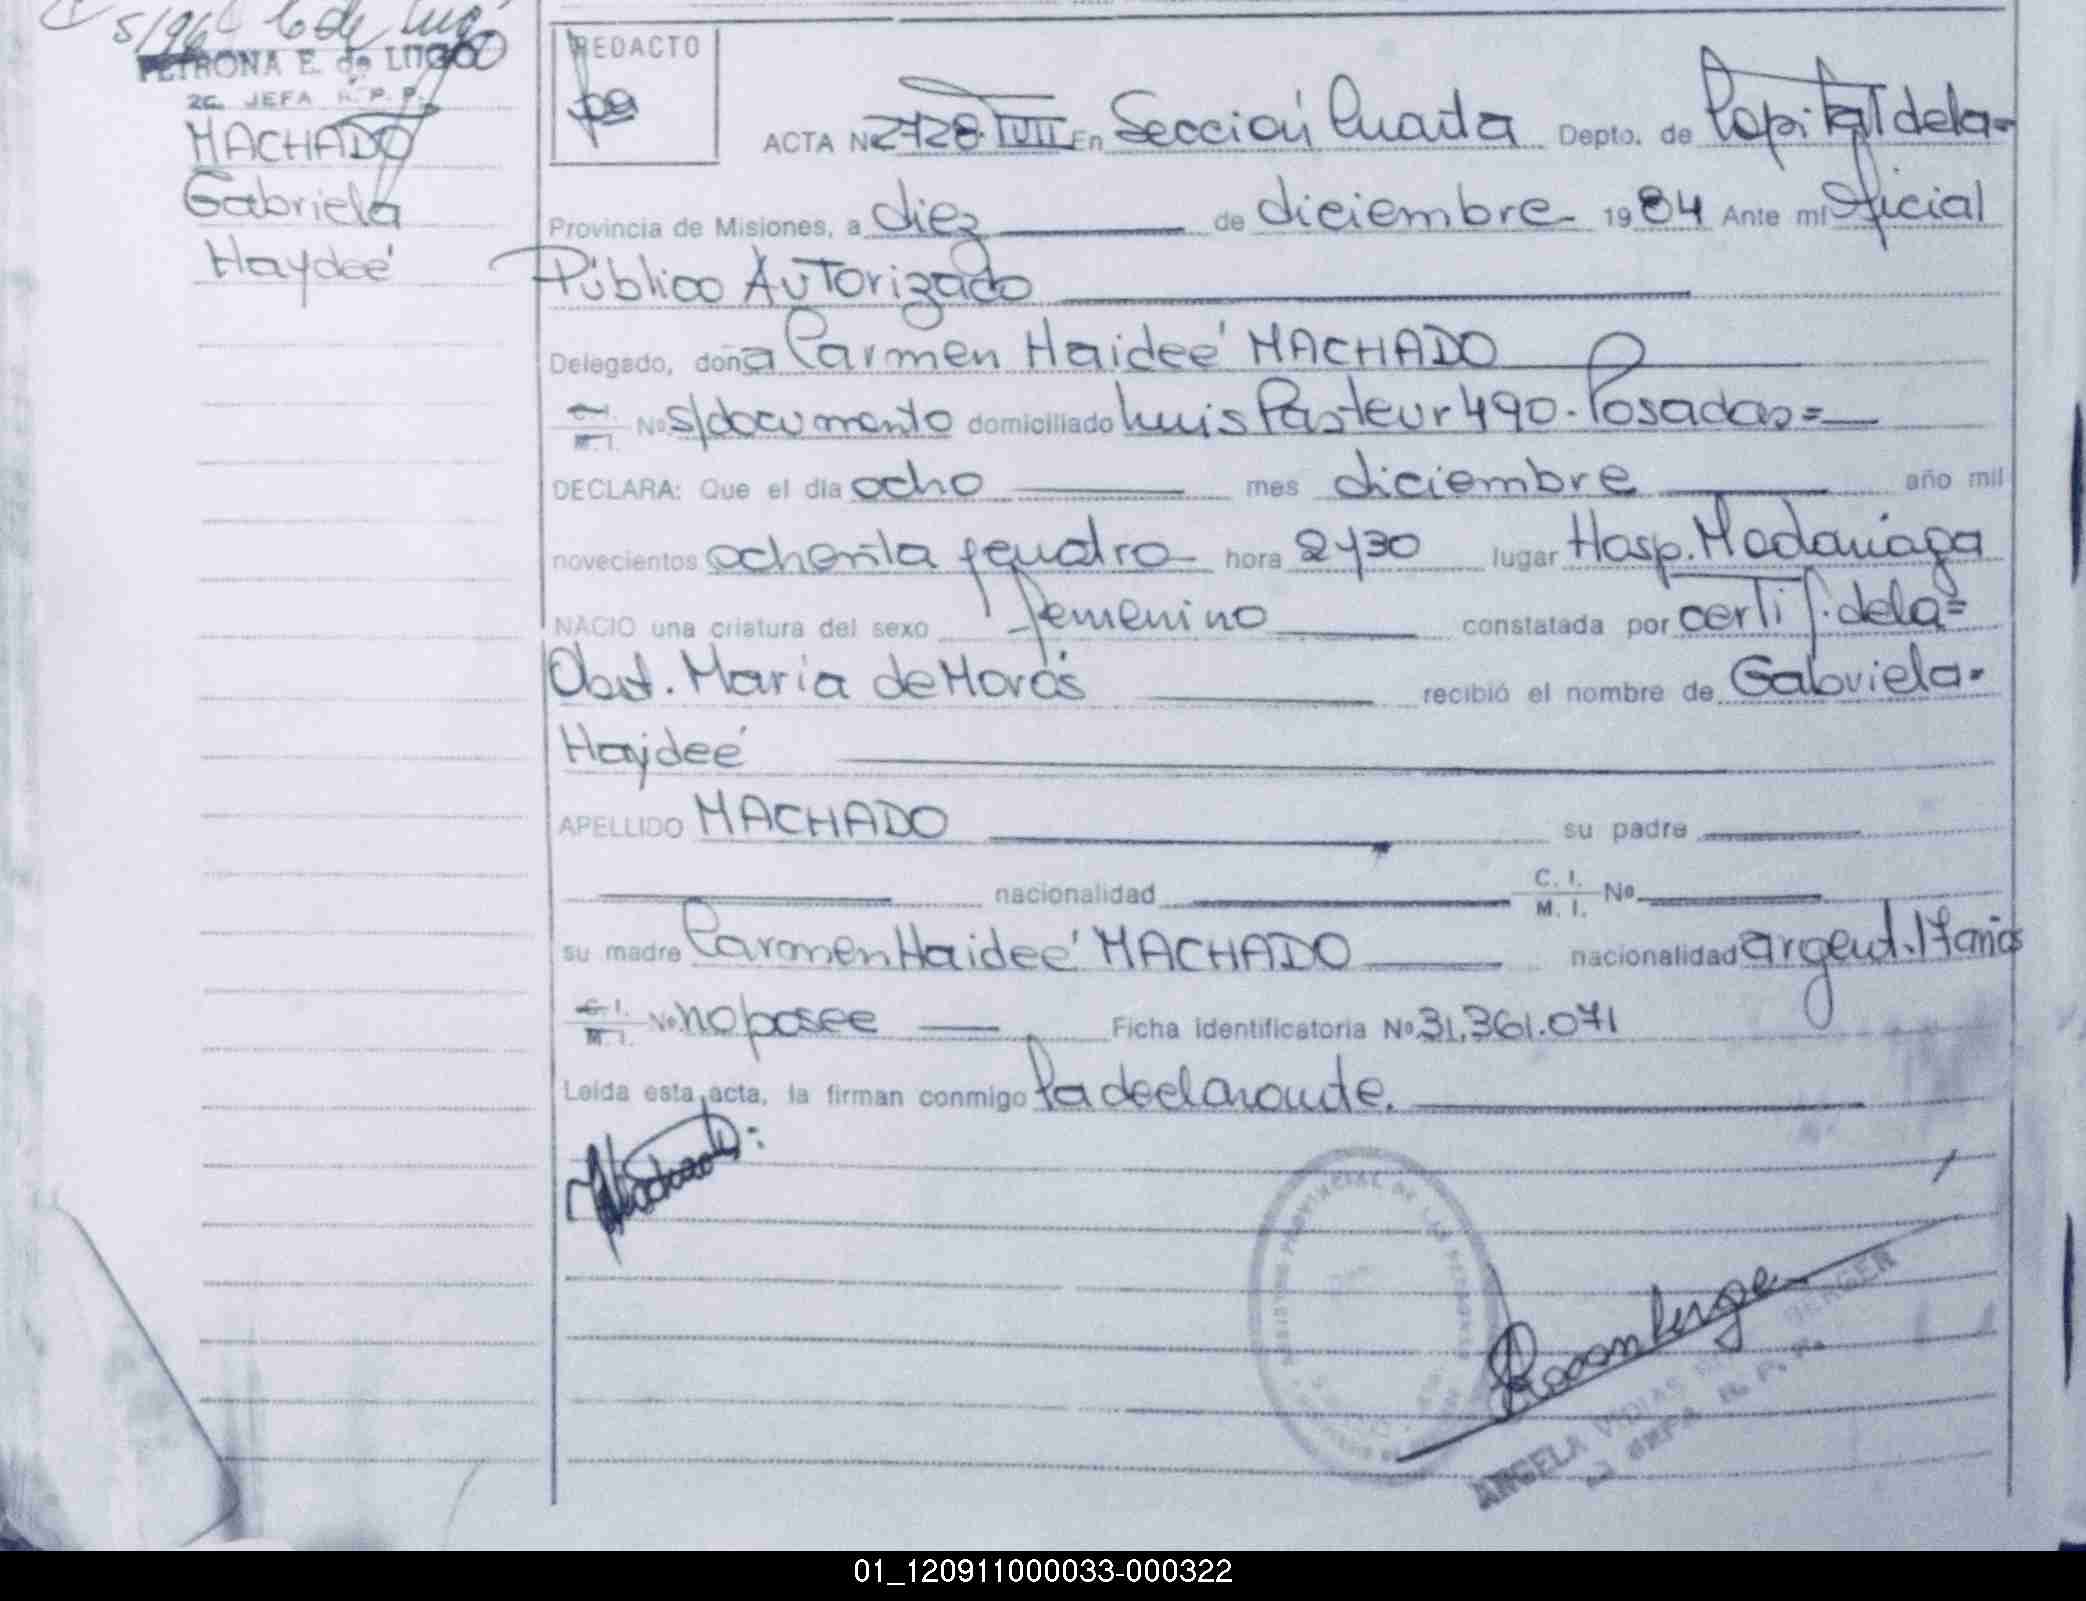 PETRONA E. de LUGO
2a. JEFA R. P. P.
MACHADO
Gabriela
Haydeé
REDACTO
ACTA Nº 2728 TVII En Sección Cuarta Depto. de Capital dela=
Provincia de Misiones, a diez de diciembre 1984 Ante mi Oficial
Público Autorizado
Delegado, doña Carmen Haideé MACHADO
C.I. M.I. Nº s/documento domiciliado Luis Pasteur 490. Posadas=
DECLARA: Que el día ocho mes diciembre año mil
novecientos ochenta y cuatro hora 2y30 lugar Hosp. Madariaga
NACIO una criatura del sexo femenino constatada por certif. dela=
Obst. María de Morás recibió el nombre de Gabriela-
Haydeé
APELLIDO MACHADO su padre
nacionalidad C. I. M. I. Nº
su madre Carmen Haideé MACHADO nacionalidad argent. 17 años
C.I. M.I. Nº no posee Ficha identificatoria Nº 31.361.071
Leída esta acta, la firman conmigo la declarante.
Machado
ANGELA BERGER
JEFA R. P. P.
01_120911000033-000322